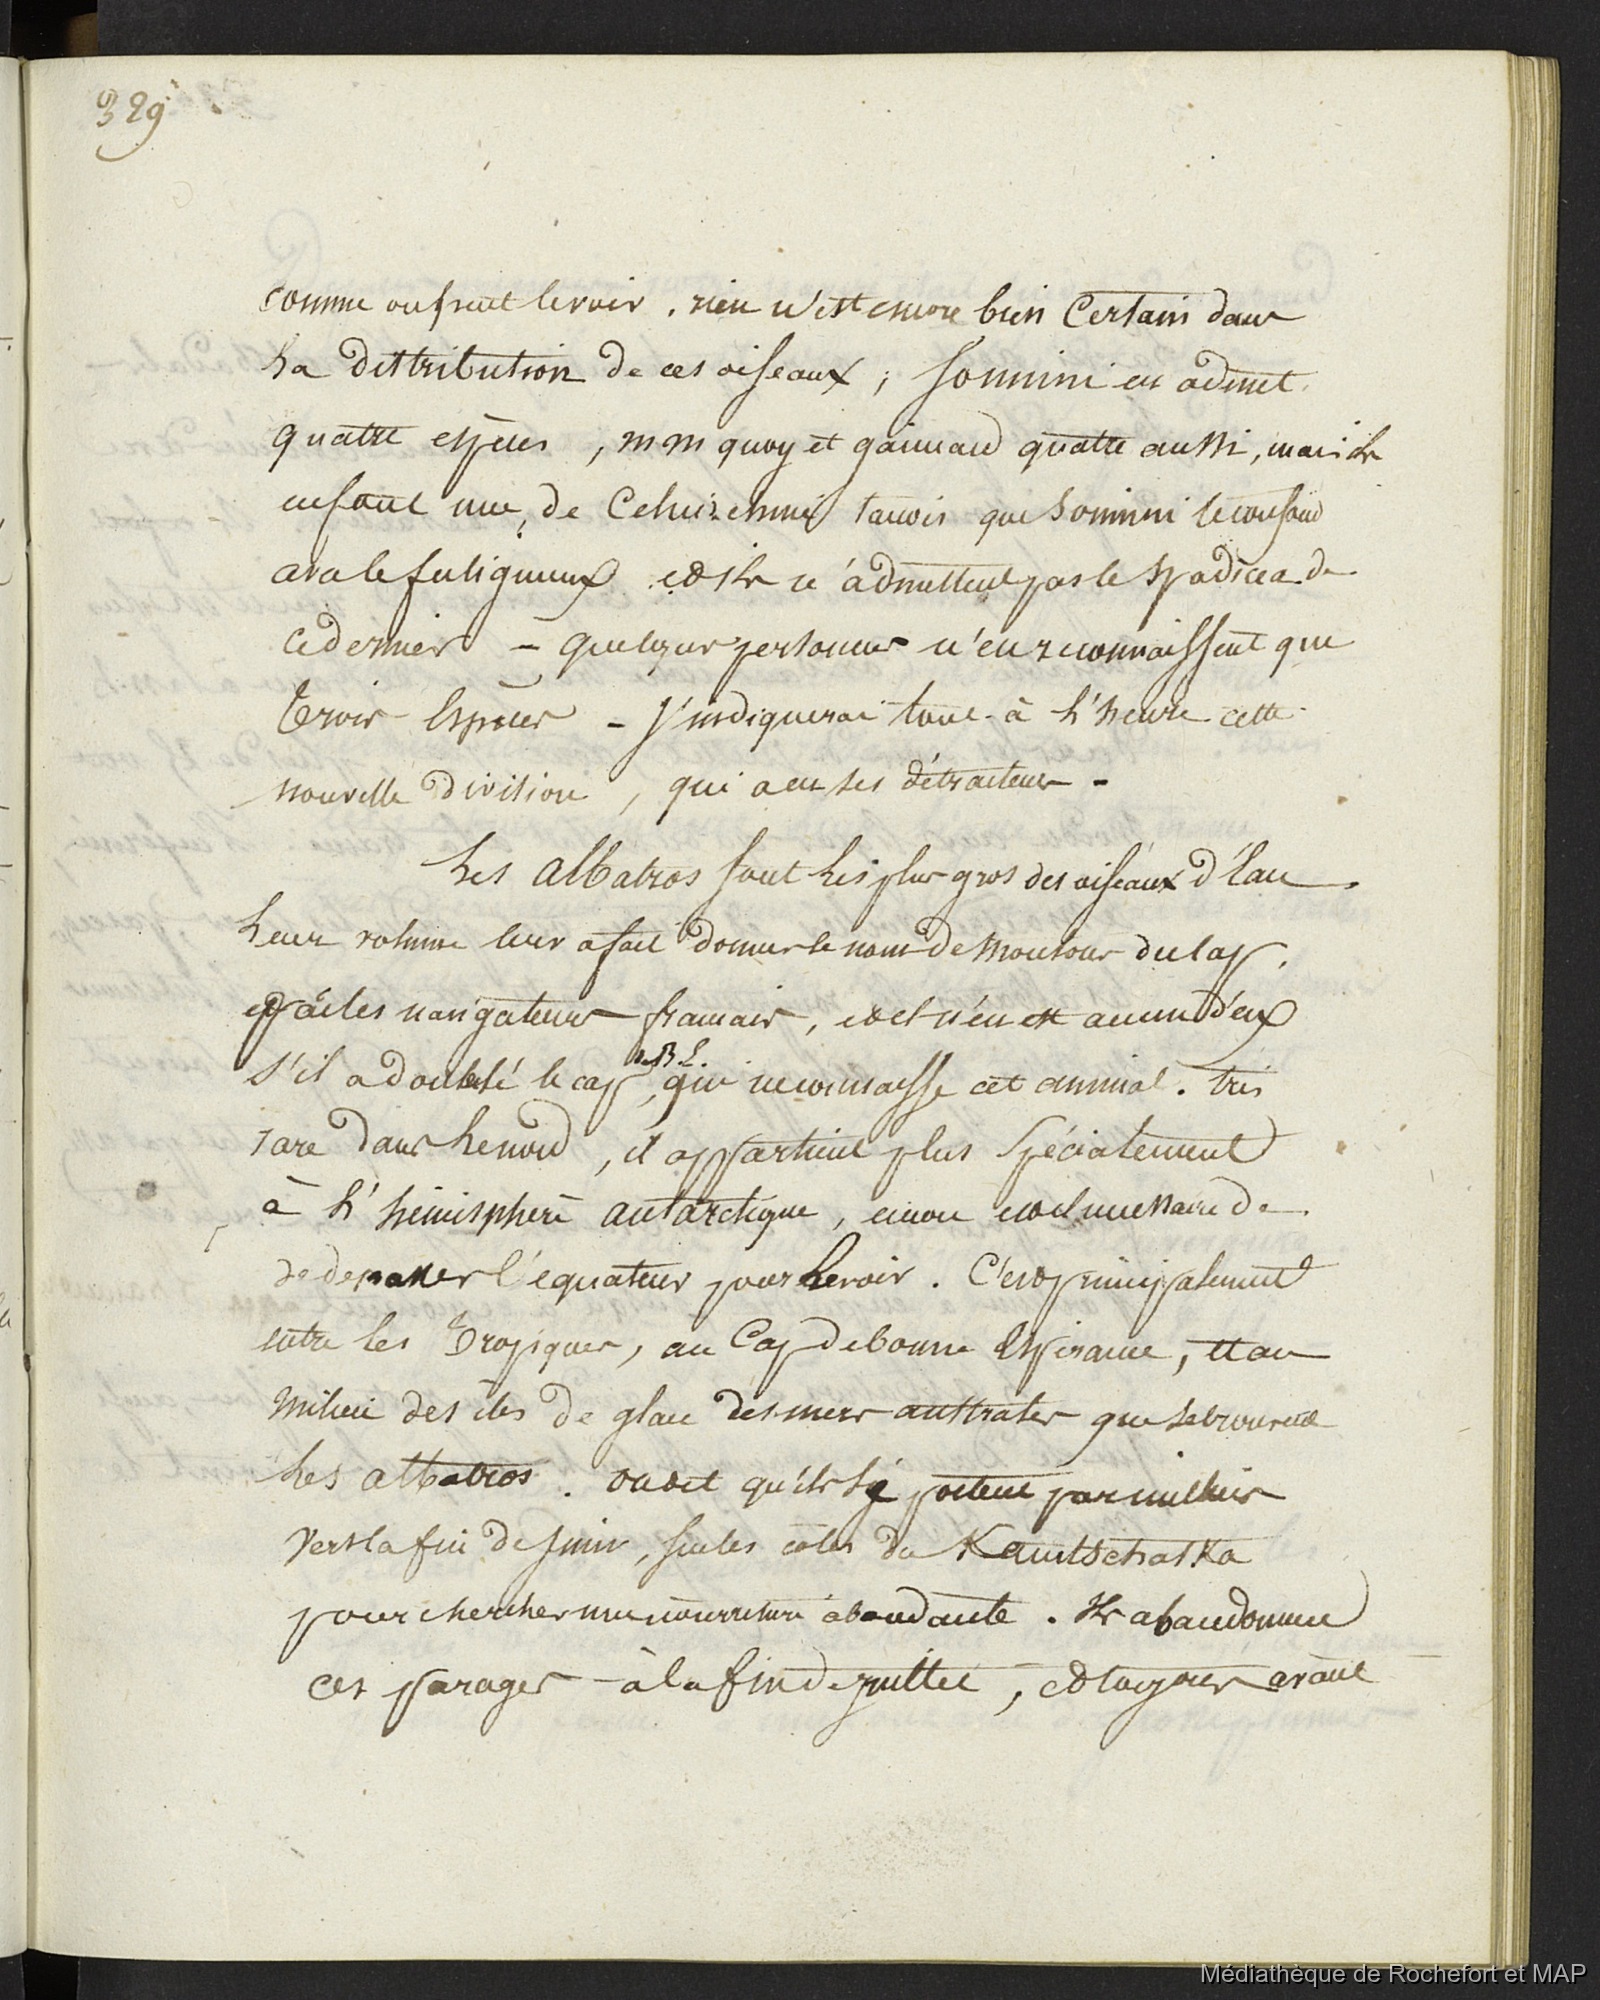 329
comme on peut le voir. rien n'est encore bien Certain dans
la distribution de ces oiseaux ; Sonnini en admet
quatre espèces, mm quoy et gaimard quatre aussi, mais ils
en font une, de Celui chiné tandis que Sonnini le confond
avec le fuligineux et ils n'admettent pas le spadicea de
ce dernier – quelques personnes n'en reconnaissent que
trois Espèces – J'indiquerai tout à l'heure cette
nouvelle division, qui a eu ses détracteurs –
les albatros sont les plus gros des oiseaux d'Eau
leur volume leur a fait donner le nom de moutons du Cap.
par les navigateurs français, et il n'en est aucun d'eux
s'il a doublé le cap de B. E., qui ne connaisse cet animal. très
rare dans le nord, il appartient plus spécialement
à l'hémisphère antarctique, encore est il nécessaire de
de depasser l'équateur pour le voir. C'est principalement
entre les Tropiques, au Cap de bonne Espérance, et au
milieu des îles de glace des mers australes que se trouvent
les albatros. on dit qu'ils se portent par milliers
vers la fin de Juin, sur les côtes du Kamtschatka
pour chercher une nourriture abondante. Ils abandonnent
ces parages à la fin de juillet, et toujours avant
Médiathèque de Rochefort et MAP